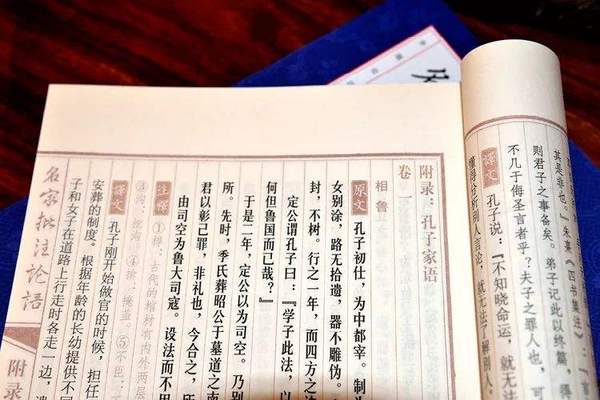 其是非也：」朱熹《四书集注》：「言
则君子之事备矣。弟子记此以终篇，得
不几于侮圣言者乎？夫子之罪人也，可
译文 孔子说：『不知晓命运，就无法
懂得分析别人言论，就无法了解别人。
附录：孔子家语
卷一
相鲁
原文 孔子初仕，为中都宰。制
女别涂，路无拾遗，器不雕伪。
封，不树。行之一年，而四方之
定公谓孔子曰：『学子此法，以
何但鲁国而已哉？』
于是二年，定公以为司空。乃别
所。先时，季氏葬昭公于墓道之南
君以彰己罪，非礼也，今合之，所
由司空为鲁大司寇。设法而不用
注释 古代的棺材有内外两层
④掩：掩盖 ⑤不臣：
译文 孔子刚开始做官的时候，担任
安葬的制度。根据年龄的长幼提供不同
子和女子在道路上行走时各走一边，遗
名家批注论语
附录